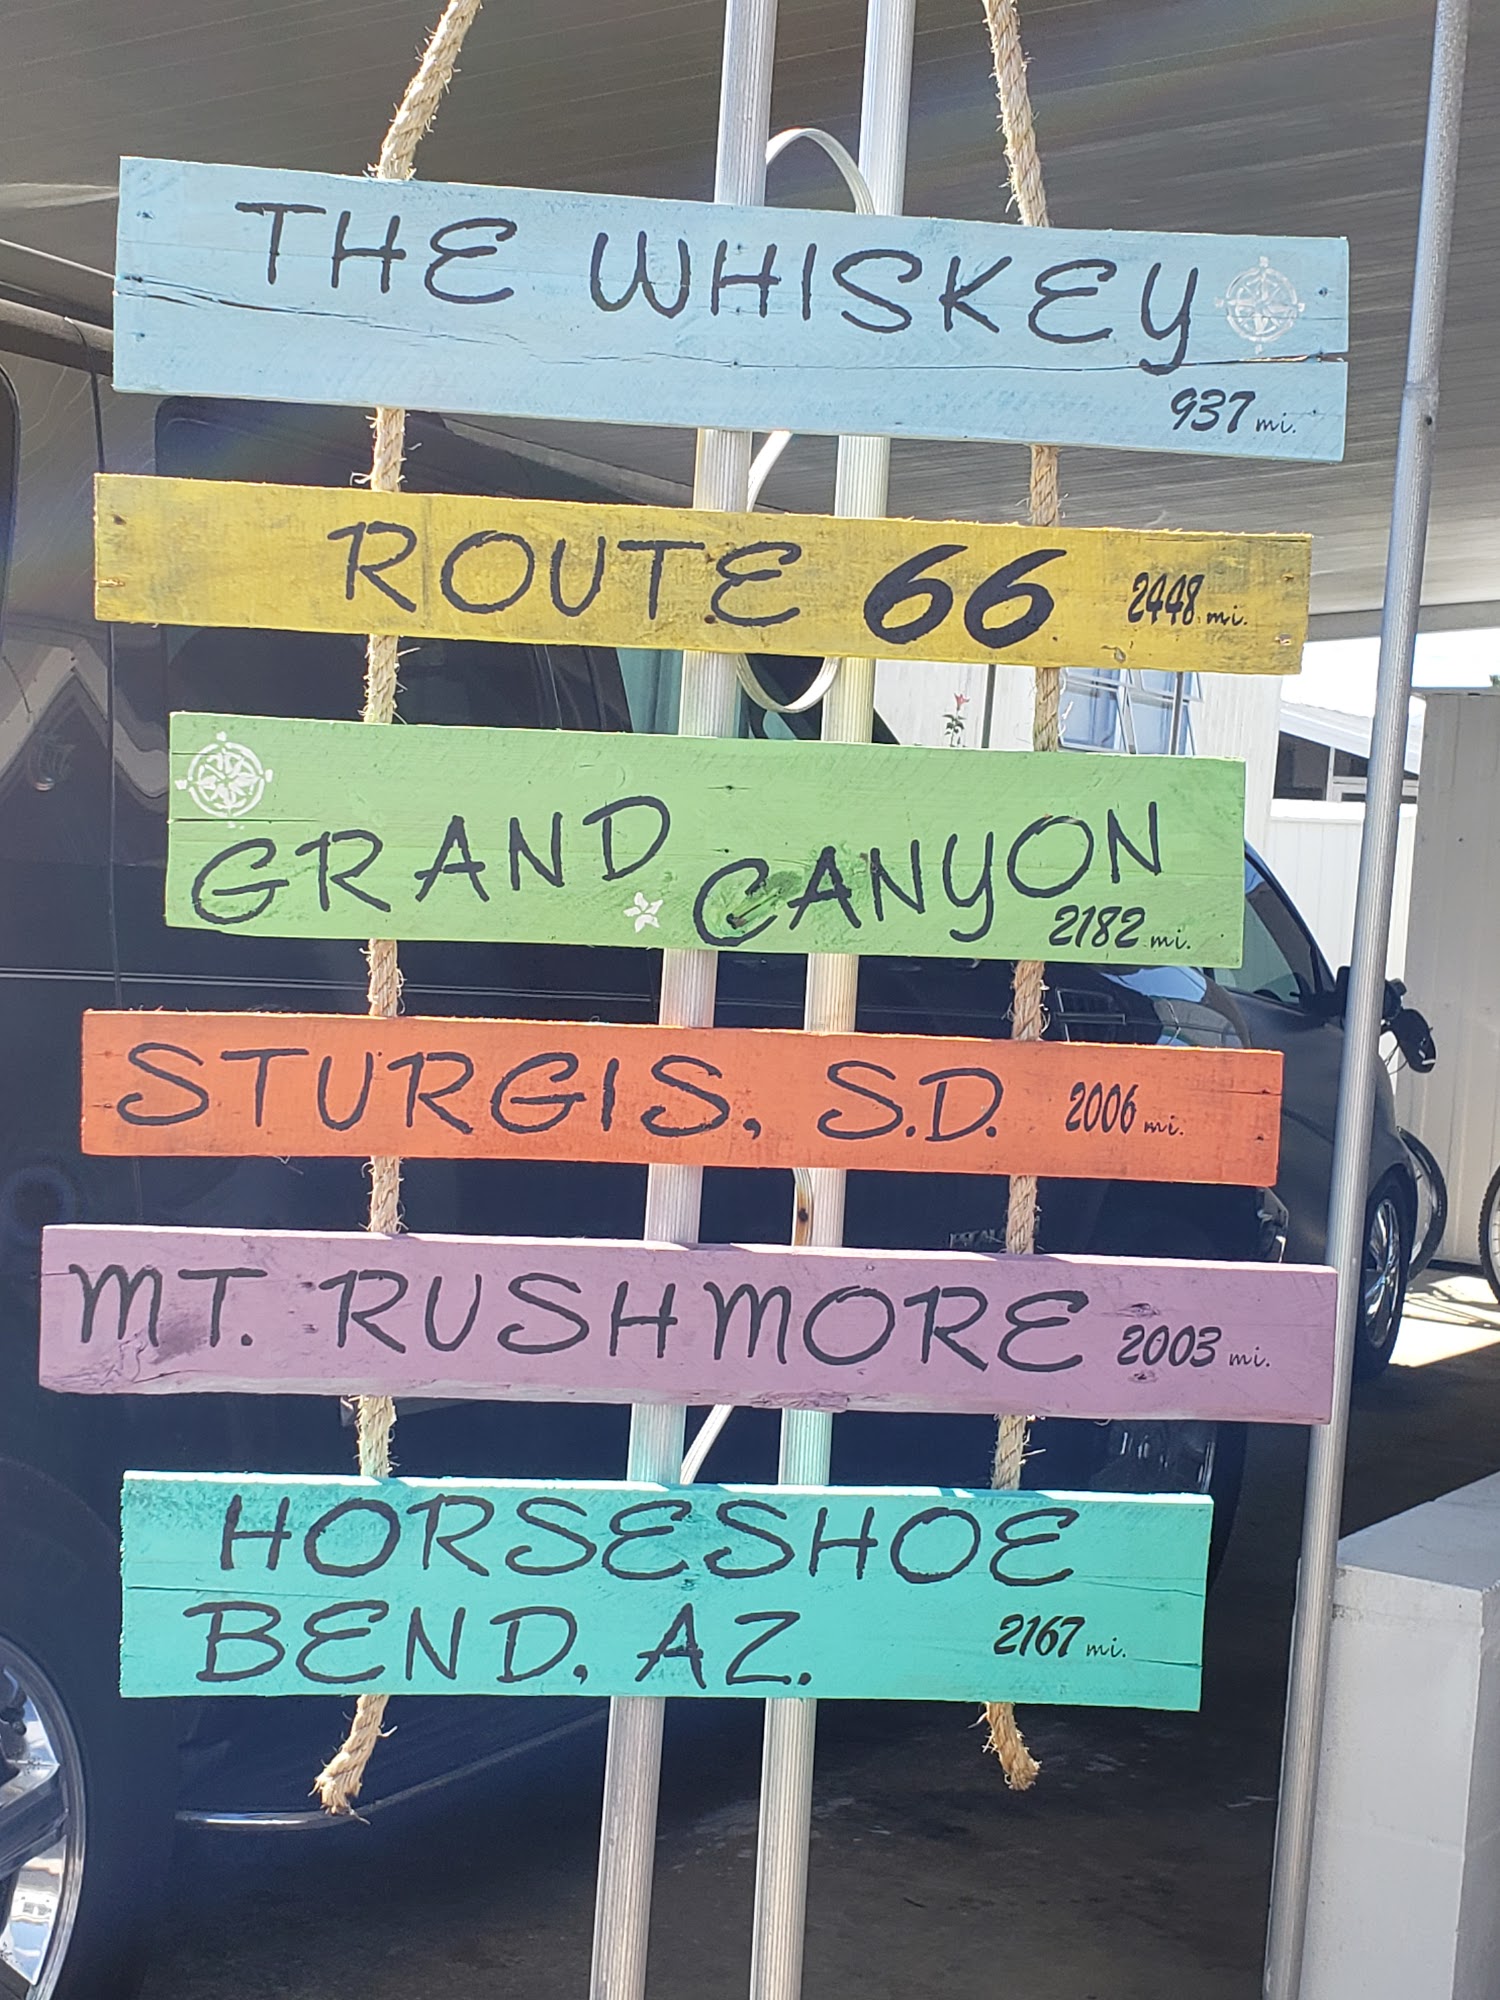 THE WHISKEY
937 mi.
ROUTE 66 2448 mi.
GRAND CANYON
2182 mi.
STURGIS, S.D. 2006 mi.
MT. RUSHMORE 2003 mi.
HORSESHOE
BEND, AZ. 2167 mi.